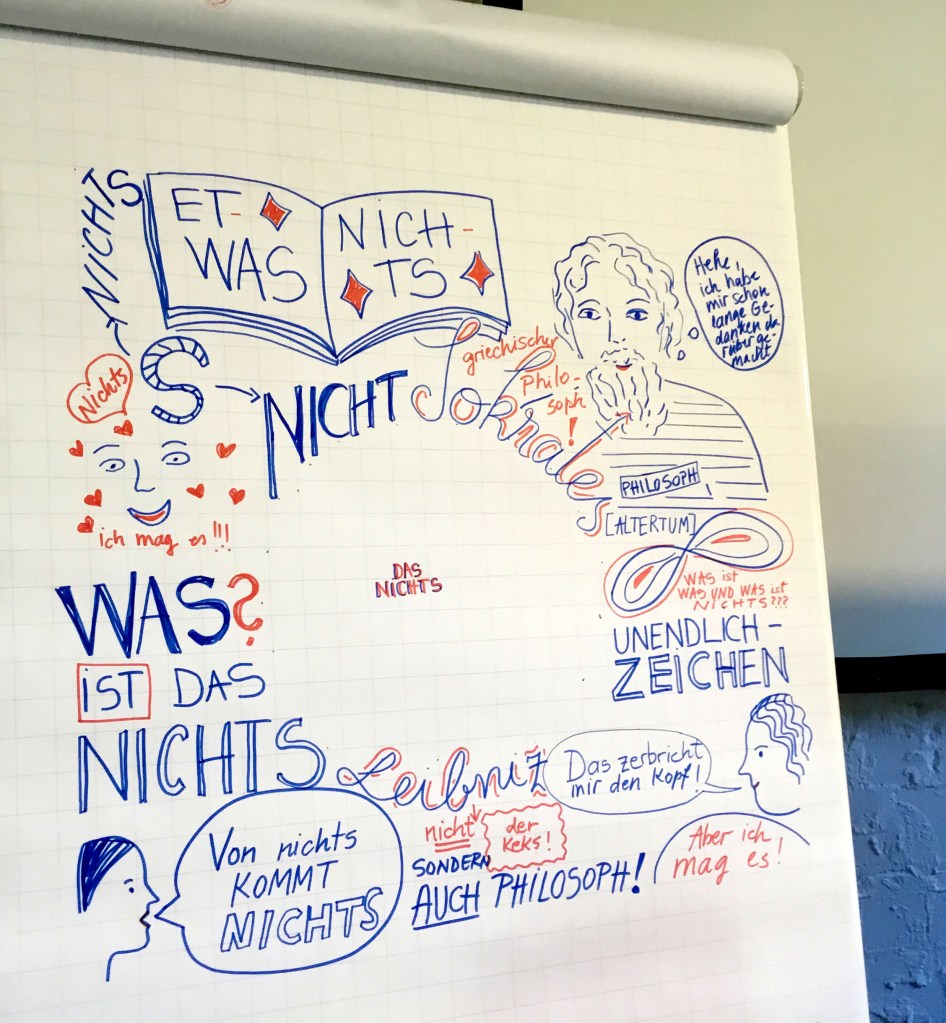 NICHTS
ET-
WAS
NICH-
TS
Hehe,
ich habe
mir schon
lange Ge-
danken da
rüber ge-
macht
griechischer
Philo-
soph
!
Nichts
S
NICHT
Sokrates
PHILOSOPH
[ALTERTUM]
ich mag es!!!
DAS
NICHTS
WAS ist
WAS UND WAS ist
NICHTS???
WAS?
IST DAS
NICHTS
UNENDLICH-
ZEICHEN
Leibniz
Das zerbricht
mir den Kopf!
nicht
der
Keks!
SONDERN
AUCH PHILOSOPH!
Aber ich
mag es!
Von nichts
KOMMT
NICHTS